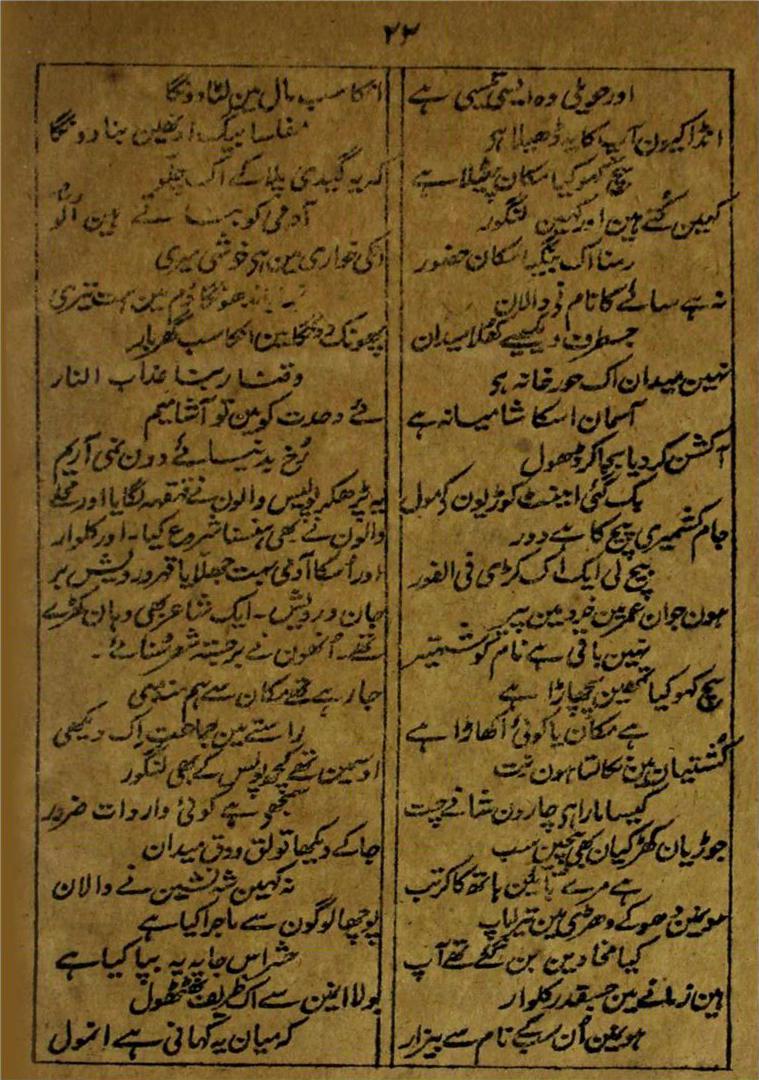 ۲۳
اور حویلی وہ ایسی تیسی ہے
انڈا کیون آپ کا یہ ڈھیلا ہو
سچ کہو کیا مکان پٹیلا ہے
کہین کتے ہین اور کہین لنگور
رمنا اک بنگیہ اسکان حضور
نہ ہے سائے کا نام نہ دالان
جسطرف دیکھیے کھلا میدان
نہین میدان اک حور خانہ ہو
آسمان اسکا شامیانہ ہے
آکشن کر دیا بجا کر ڈھول
بک گئی اینٹ کوڑیون کے مول
جام کشمیری پیچ کا ہے دور
بیچ لی ایک اک کڑی فی الفور
ہون جوان عمر مین خرد مین پیر
نہین باقی ہے نام کو شہتیر
سچ کہو کیا تمھین پچھاڑا ہے
ہے مکان یا کوئی اکھاڑا ہے
کشتیان مین نکالتا ہون نت
کیسا مارا ہو چارون شانے چت
جوڑیان کھڑکیان بھی تھین سب
ہے مرے بائین ہاتھ کا کرتب
موین دھوکے دھڑی مین تیرا باپ
کیا مخادین بن گئے تھے آپ
ہین زمانے مین جسقدر کلوار
ہوین اُن سبکے نام سے بیزار
انکا سب مال مین لٹا دونگا
مفلسا بیگ اونھین بنا دونگا
کر یہ گیدی پلا کے اک چلّو
آدمی کو بناتے ہین اُلّو
انکی خواری مین ہو خوشی میری
باندھونگا دُم مین بہت تیری
پھونک دونگا مین انکا سب گھر بار
وقنا ربنا عذاب النار
مئے وحدت کو مین تو آشامیم
رُخ بدنیائے دون نمی آریم
یہ پڑھکر پولیس والون نے قہقہہ لگایا اور محلے
والون نے بھی ہنسنا شروع کیا۔ اور کلوار
اور اُسکا آدمی بہت جھلّایا قہر درویش بر
جان درویش۔ ایک شاعر بھی وہان کھڑے
تھے۔ اُنھون نے برجستہ شعر سُنائے۔
جا رہے تھے مکان سے ہم منہسی
راستے مین جماعت اِک دیکھی
اوسمین تھے کچھ پولس کے بھی لنگور
سمجھو ہے کوئی واردات ضرور
جاکے دیکھا تو لق و دق میدان
نہ کہین شہ نشین نے دالان
پوچھا لوگون سے ماجرا کیا ہے
حشر اس جا پہ یہ بپا کیا ہے
بولا اینن سے اک ظریف ٹھٹھول
کہ میان یہ کہانی ہے انمول